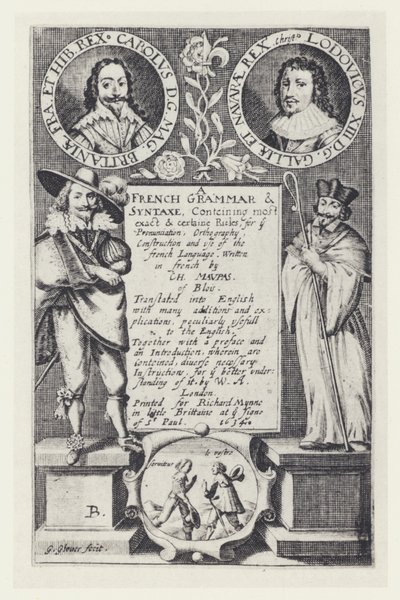 CAROLVS D.G. MAG. BRITANIÆ FRA. ET HIB. REX.
LODOVICVS XIII. D.G. GALLIÆ ET NAVARÆ REX christ.
A
FRENCH GRAMMAR &
SYNTAXE, Conteining most
exact & certaine Rules, for ye
Pronunciation, Orthography,
Construction and use of the
french Language. Written
in french by
CH. MAVPAS.
of Bloy.
Translated into English
with many additions and ex-
plications, peculiarly usefull
to the English.
Together with a preface and
an Introduction, wherein are
conteined, diverse necessary
Instructions, for ye better under-
standing of it. by W. A.
London.
Printed for Richard Mynne
in little Brittaine at ye signe
of St Paul. 1634.
serviteur
le vostre
B.
G. Glover fecit.